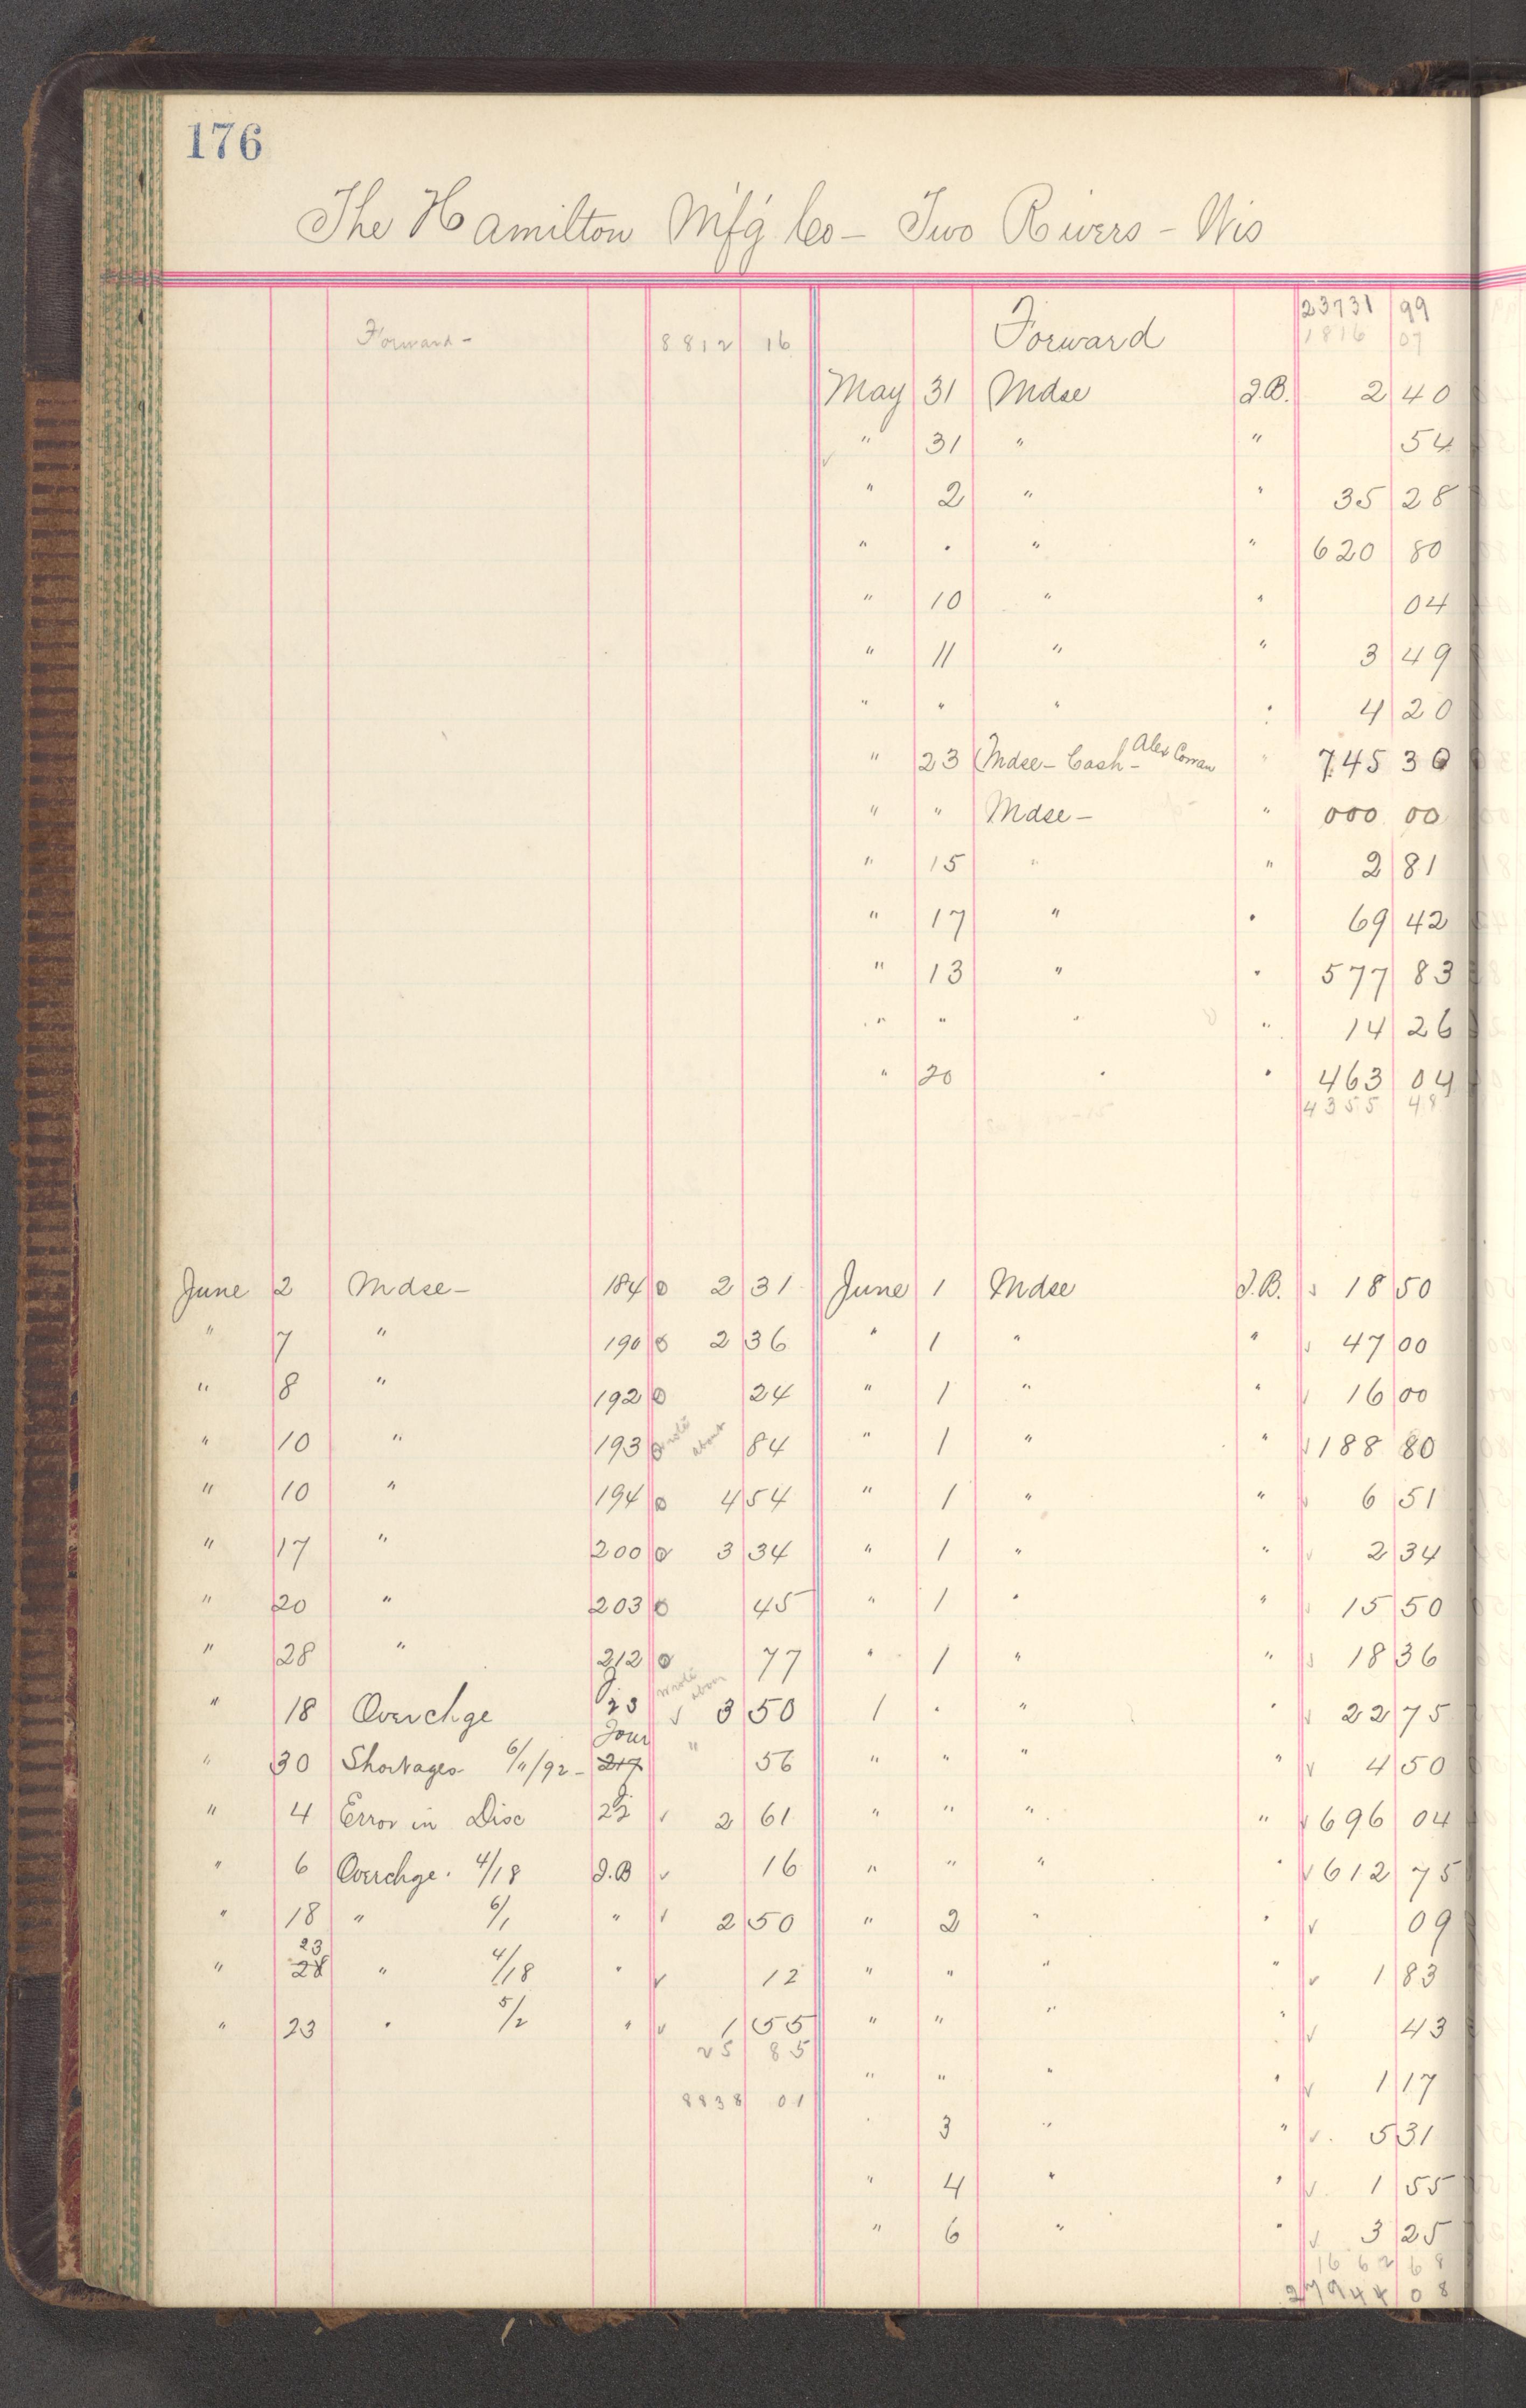 176
The Hamilton M'f'g Co - Two Rivers - Wis
Forward - 8812 16
Forward 23731 99
1816 07
May 31 Mdse I.B. 2 40
" 31 " " 54
" 2 " " 35 28
" " " " 620 80
" 10 " " 04
" 11 " " 3 49
" " " " 4 20
" 23 Mdse - Cash - Alex Cowan " 745 30
" " Mdse - " 000 00
" 15 " " 2 81
" 17 " " 69 42
" 13 " " 577 83
" " " " 14 26
" 20 " " 463 04
4355 48
June 2 Mdse - 184 2 31 June 1 Mdse I.B. 18 50
" 7 " 190 2 36 " 1 " " 47 00
" 8 " 192 24 " 1 " " 16 00
" 10 " 193 wrote about 84 " 1 " " 188 80
" 10 " 194 4 54 " 1 " " 6 51
" 17 " 200 3 34 " 1 " " 2 34
" 20 " 203 45 " 1 " " 15 50
" 28 " 212 77 " 1 " " 18 36
" 18 Overchge J 23 wrote about ✓ 3 50 1 " " " 22 75
" 30 Shortages 6/11/92 - Jour 217 " 56 " " " " ✓ 4 50
" 4 Error in Disc J 22 ✓ 2 61 " " " " ✓ 696 04
" 6 Overchge. 4/18 I.B ✓ 16 " " " " ✓ 612 75
" 18 " 6/1 " ✓ 2 50 " 2 " " ✓ 09
" 28 23 " 4/18 " ✓ 12 " " " " ✓ 1 83
" 23 " 5/2 " ✓ 1 55 " " " " ✓ 43
25 85
" " " " ✓ 1 17
8838 01
" 3 " " ✓ 5 31
" 4 " " ✓ 1 55
" 6 " " ✓ 3 25
1662 68
27944 08